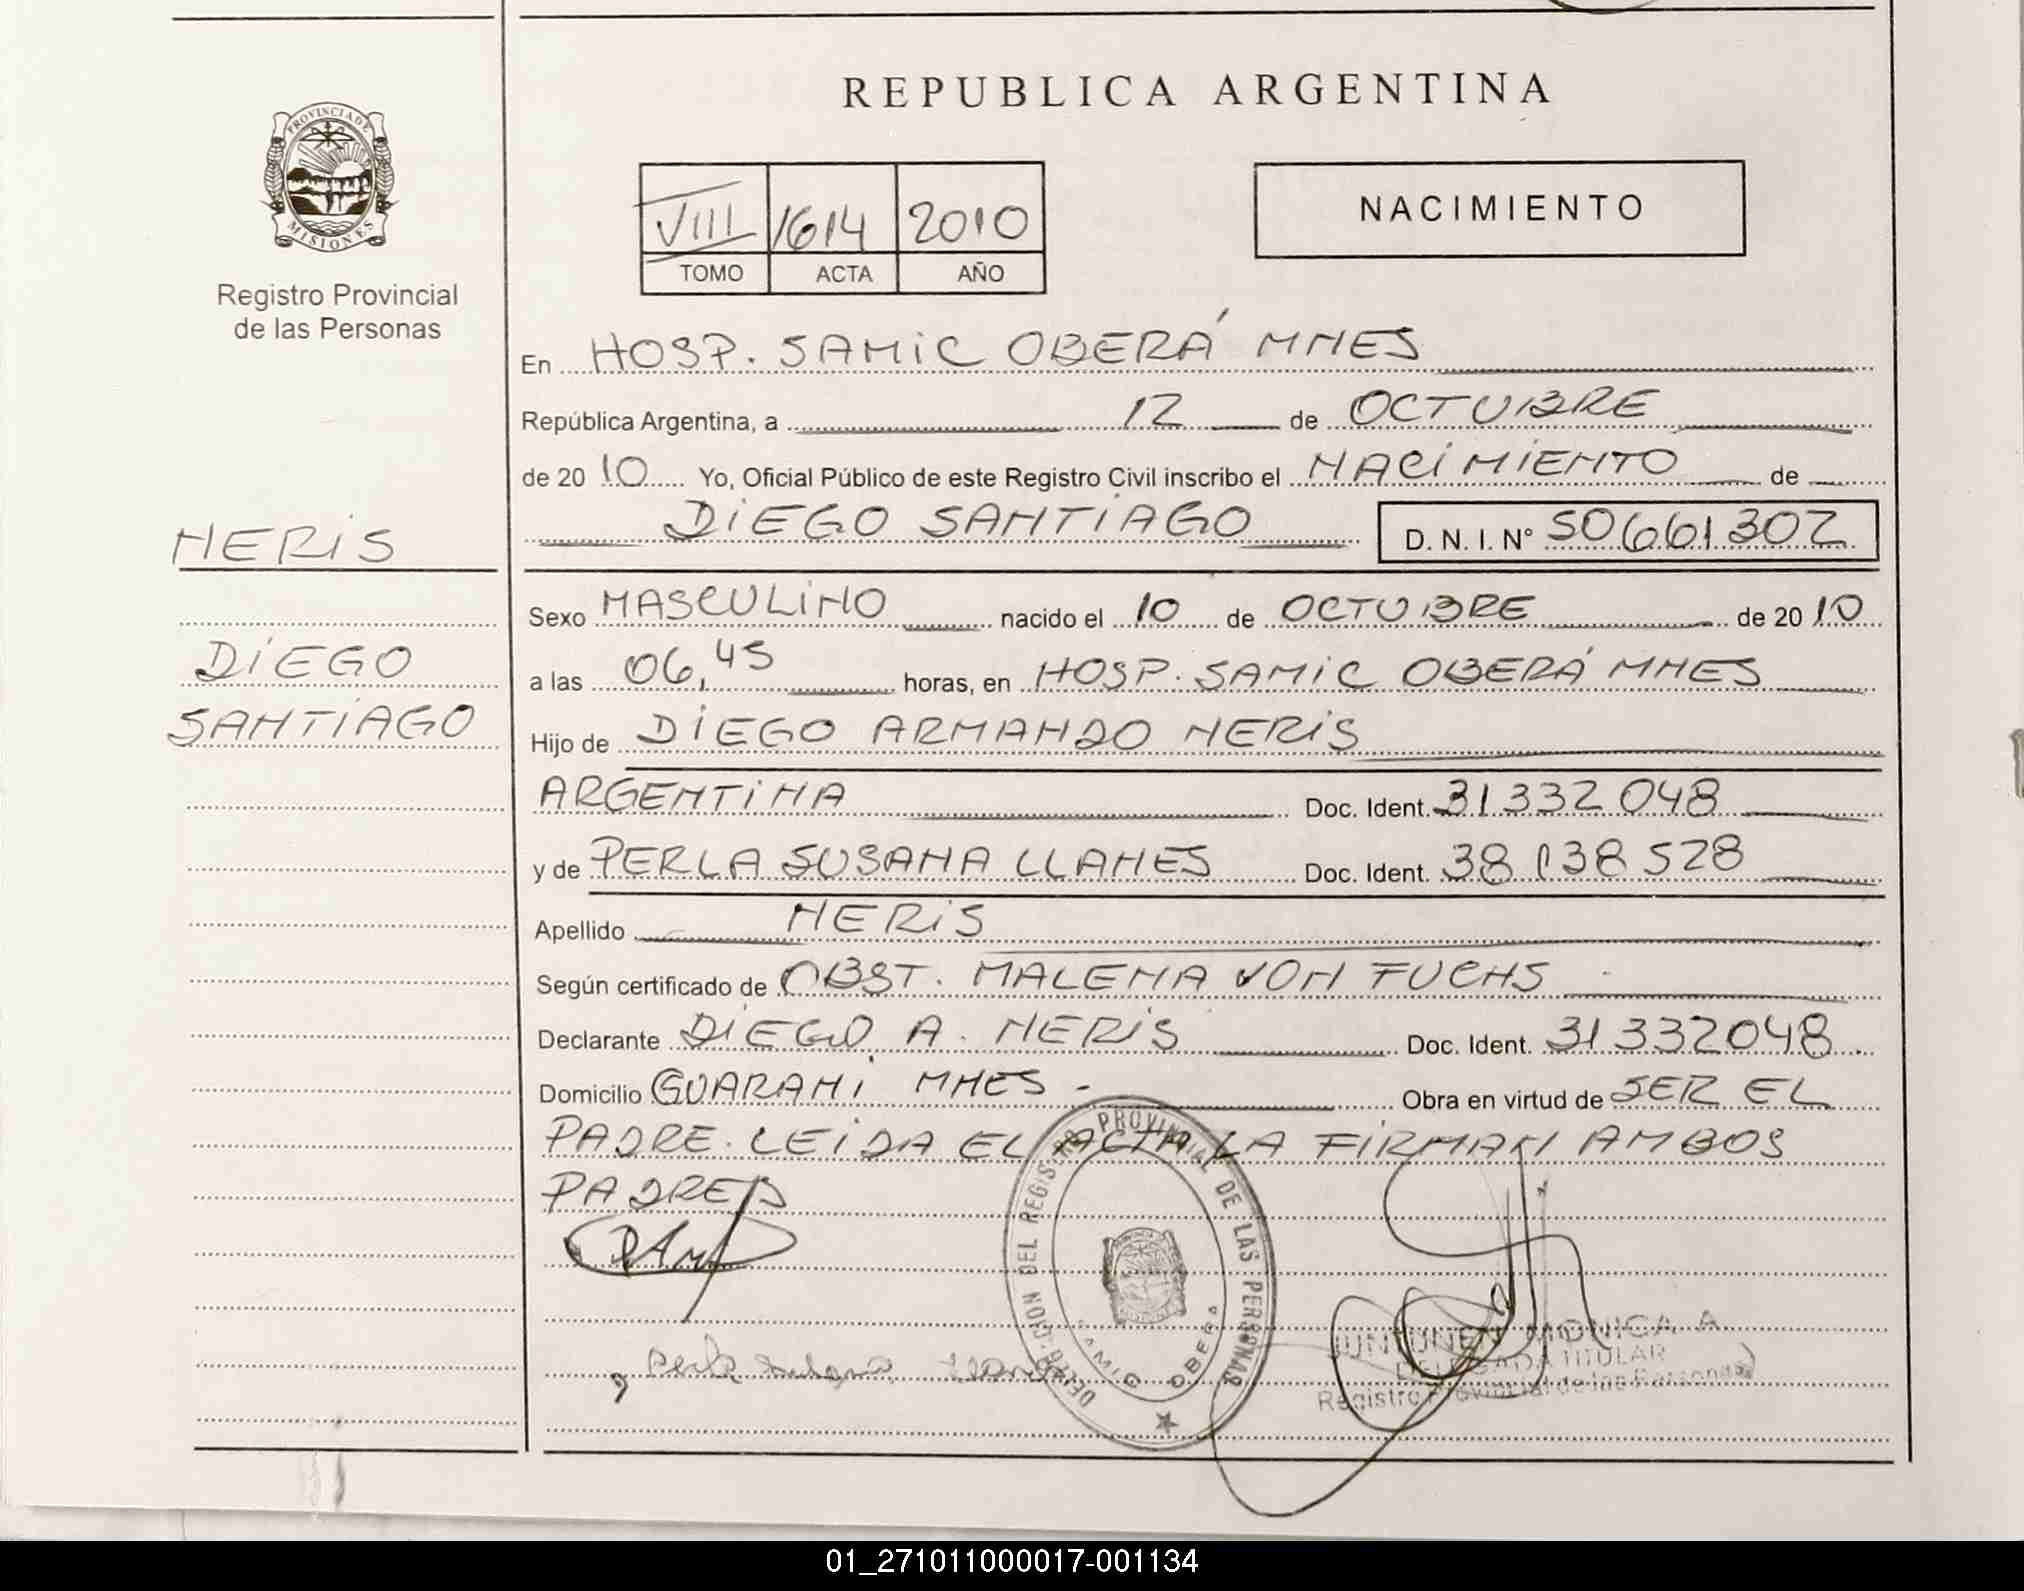 REPUBLICA ARGENTINA
PROVINCIA DE
MISIONES
Registro Provincial
de las Personas
VIII 1614 2010
TOMO ACTA AÑO
NACIMIENTO
En HOSP. SAMIC OBERÁ MNES
República Argentina, a 12 de OCTUBRE
de 2010 Yo, Oficial Público de este Registro Civil inscribo el NACIMIENTO de
DIEGO SANTIAGO D. N. I. N° 50661302
NERIS
DIEGO
SANTIAGO
Sexo MASCULINO nacido el 10 de OCTUBRE de 2010
a las 06,45 horas, en HOSP. SAMIC OBERÁ MNES
Hijo de DIEGO ARMANDO NERIS
ARGENTINA Doc. Ident. 31332048
y de PERLA SUSANA LLANES Doc. Ident. 38138528
Apellido NERIS
Según certificado de OBST. MALENA VON FUCHS
Declarante DIEGO A. NERIS Doc. Ident. 31332048
Domicilio GUARANI MNES - Obra en virtud de SER EL
PADRE. LEIDA EL ACTA LA FIRMAN AMBOS
PADRES
DELEGACION DEL REGISTRO PROVINCIAL DE LAS PERSONAS
SAMIC OBERA
JUNTUNEN MONICA A
DELEGADA TITULAR
Registro Provincial de las Personas
01_271011000017-001134